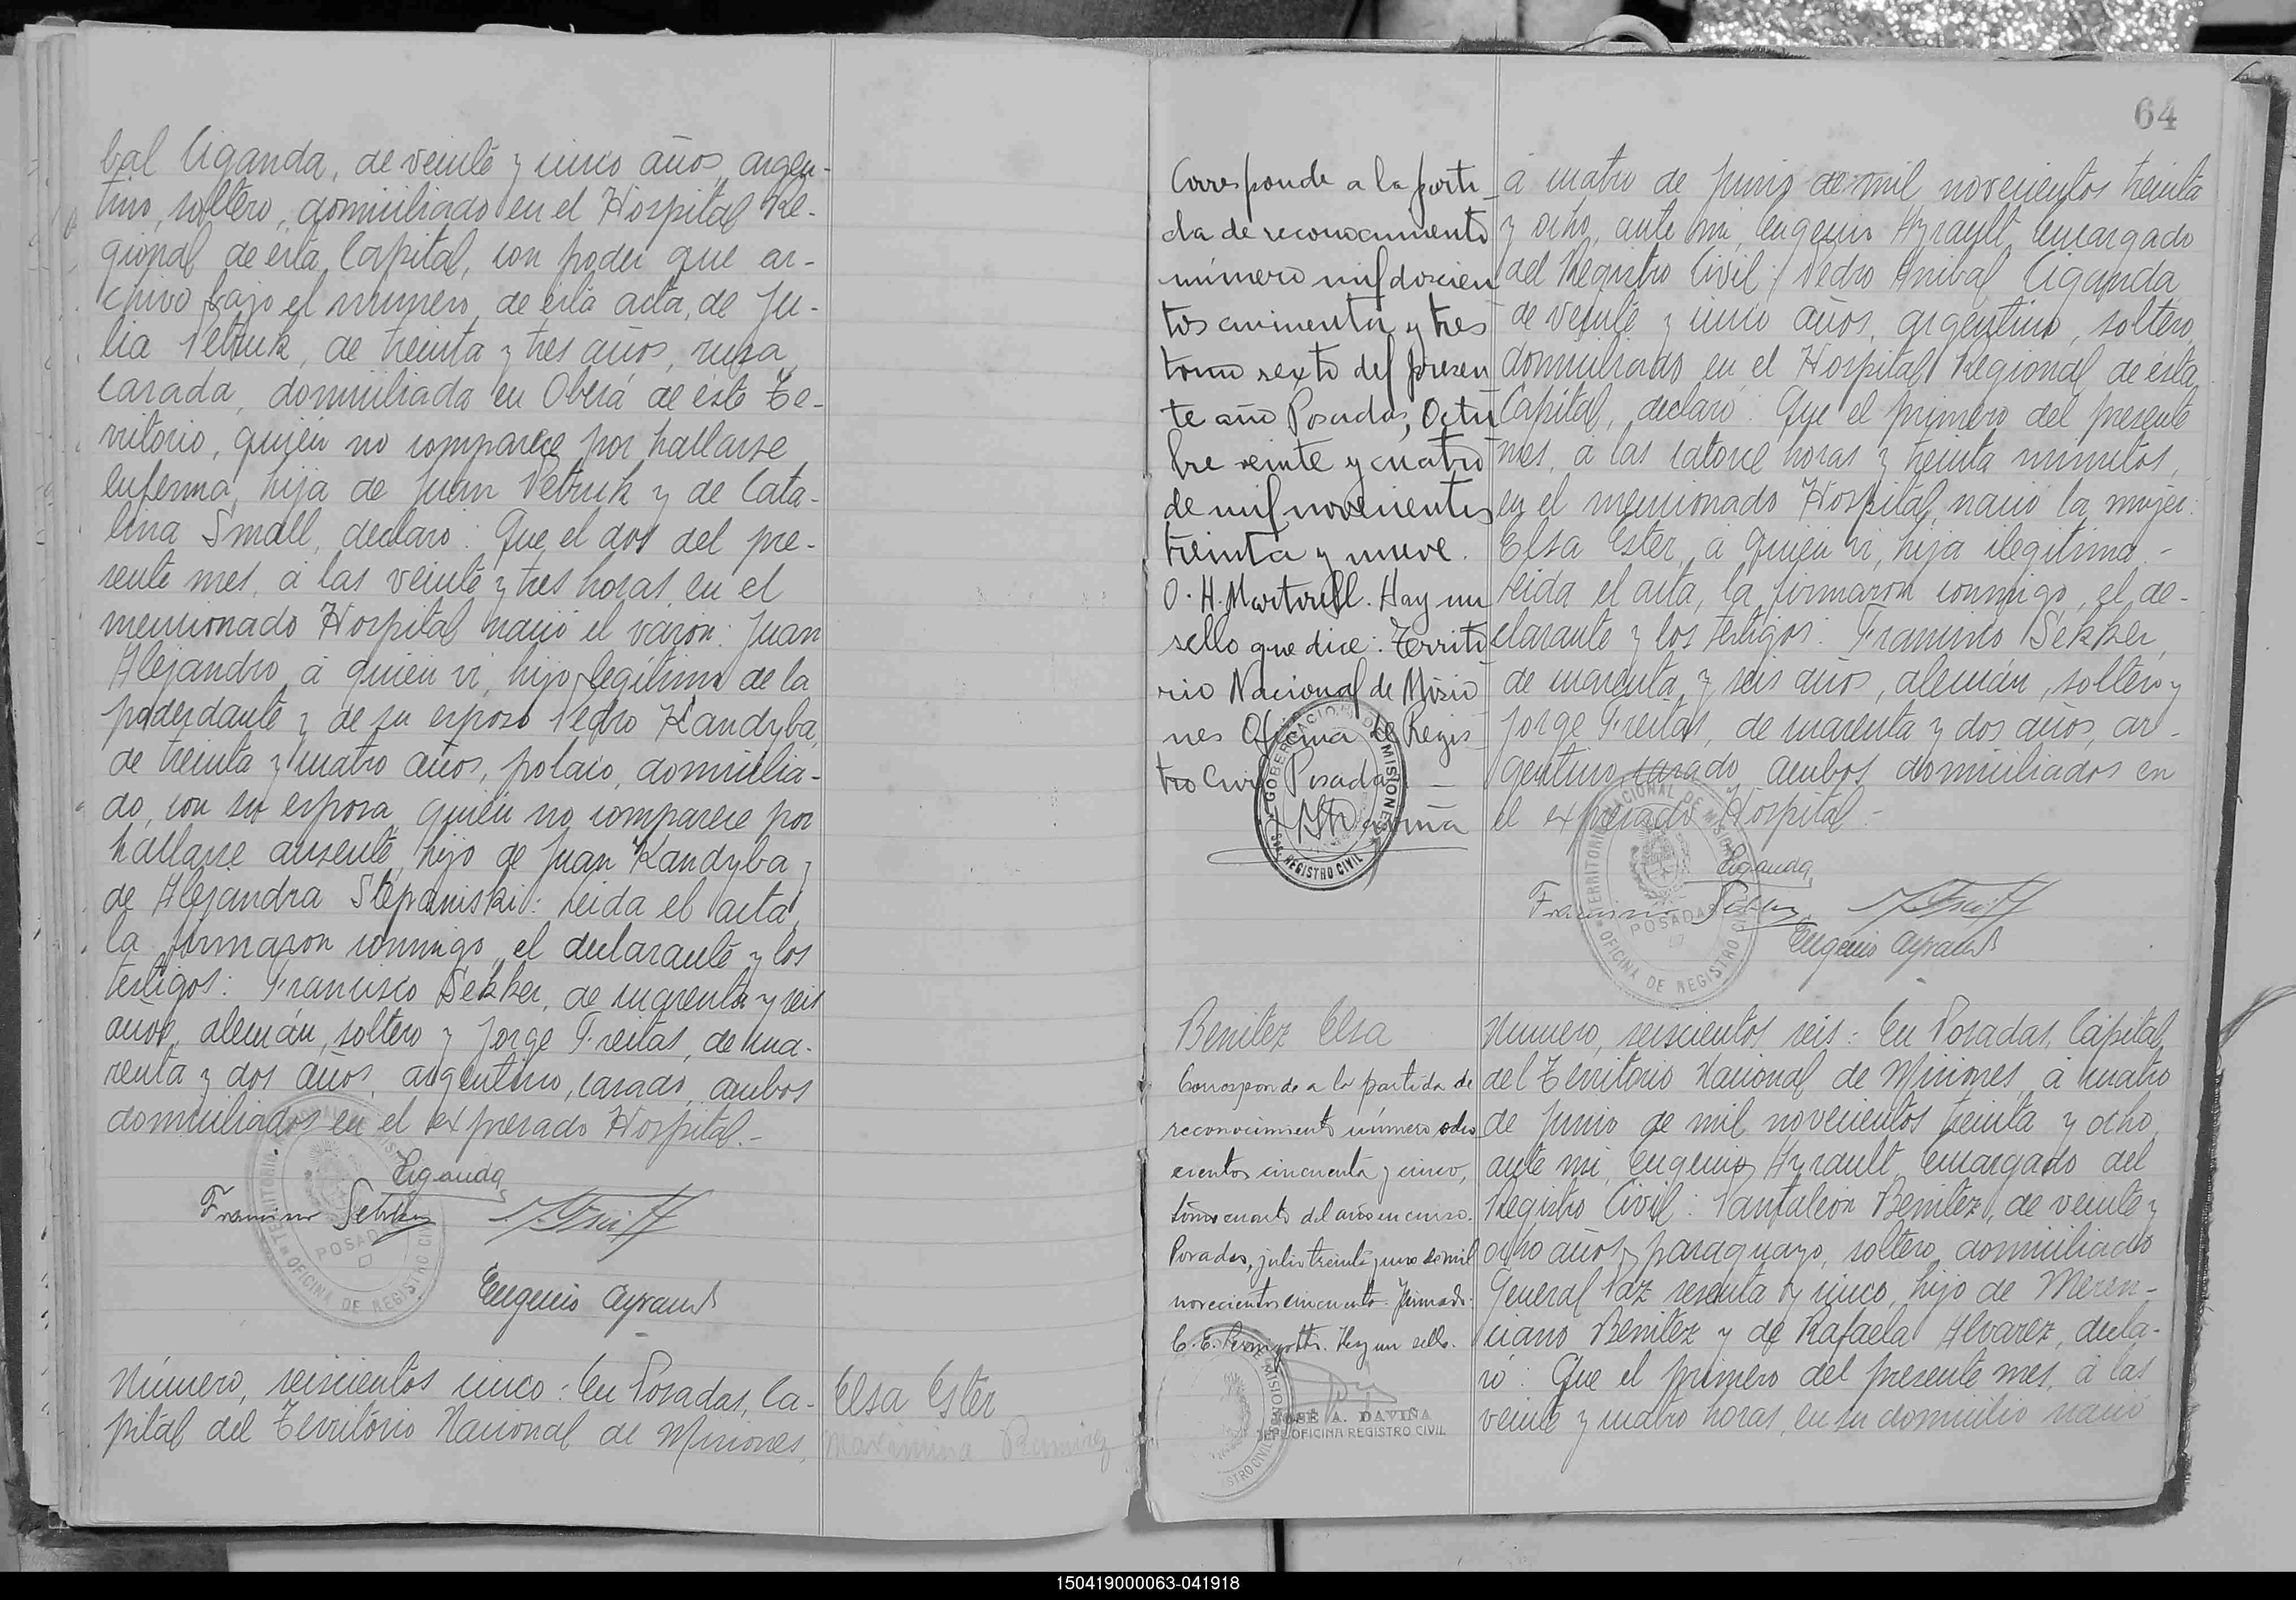 bal Eiganda, de veinte y cinco años, argen-
tino, soltero, domiciliado en el Hospital Re-
gional de ésta Capital, con poder que ar-
chivo bajo el número de ésta acta, de Ju-
lia Petruk, de treinta y tres años, rusa,
casada, domiciliada en Oberá de éste Te-
rritorio, quien no comparece por hallarse
enferma, hija de Juan Petruk y de Cata-
lina Small, declaró: Que el dos del pre-
sente mes, á las veinte y tres horas, en el
mencionado Hospital nació el varón: Juan
Alejandro, á quien vi, hijo legítimo de la
poderdante y de su esposo Pedro Kandyba,
de treinta y cuatro años, polaco, domicilia-
do, con su esposa, quien no comparece por
hallarse ausente, hijo de Juan Kandyba y
de Alejandra Stepaniski: Leida el acta,
la firmaron conmigo, el declarante y los
testigos: Francisco Sekker, de cuarenta y seis
años, alemán, soltero y Jorge Freitas, de cua-
renta y dos años, argentino, casado, ambos
domiciliados en el expresado Hospital.-
TERRITORIO NACIONAL DE MISIONES
OFICINA DE REGISTRO CIVIL
POSADAS
Eiganda
Francisco Sekker
Eugenio Ayrault
Número, seiscientos cinco: En Posadas, Ca-
pital del Territorio Nacional de Misiones,
Elsa Ester
Maximina Ramirez
64
Corresponde a la parti-
da de reconocimiento
número mil doscien
tos cincuenta y tres
tomo sexto del presen
te año Posadas, Octu
bre veinte y cuatro
de mil novecientos
treinta y nueve.
O. H. Martorell. Hay un
sello que dice: Territo
rio Nacional de Misio
nes Oficina de Regis-
tro Civil Posadas —
GOBERNACION DE MISIONES
REGISTRO CIVIL
á cuatro de Junio de mil novecientos treinta
y ocho, ante mi, Eugenio Ayrault Encargado
del Registro Civil: Pedro Anibal Eiganda
de veinte y cinco años, argentino, soltero,
domiciliado en el Hospital Regional de ésta
Capital, declaró: Que el primero del presente
mes, á las catorce horas y treinta minutos,
en el mencionado Hospital, nació la mujer:
Elsa Ester, á quien vi, hija ilegítima.-
Leida el acta, la firmaron conmigo, el de-
clarante y los testigos: Francisco Sekker,
de cuarenta y seis años, alemán, soltero y
Jorge Freitas, de cuarenta y dos años, ar-
gentino, casado, ambos domiciliados en
el expresado Hospital.-
TERRITORIO NACIONAL DE MISIONES
OFICINA DE REGISTRO CIVIL
POSADAS
Eiganda
Francisco Sekker
Eugenio Ayrault
Benitez Elsa
Corresponde a la partida de
reconocimiento número ocho
cientos cincuenta y cinco,
tomo cuarto del año en curso.
Posadas, julio treinta y uno de mil
novecientos cincuenta. Firmado:
C. E. Hay un sello.
JOSÉ A. DAVIÑA
OFICINA REGISTRO CIVIL
Número, seiscientos seis: En Posadas, Capital
del Territorio Nacional de Misiones, á cuatro
de Junio de mil novecientos treinta y ocho,
ante mi, Eugenio Ayrault, Encargado del
Registro Civil: Pantaleón Benitez, de veinte y
ocho años, paraguayo, soltero, domiciliado
General Paz sesenta y cinco, hijo de Meren-
ciano Benitez y de Rafaela Alvarez, decla-
ró: Que el primero del presente mes, á las
veinte y cuatro horas, en su domicilio nació
150419000063-041918